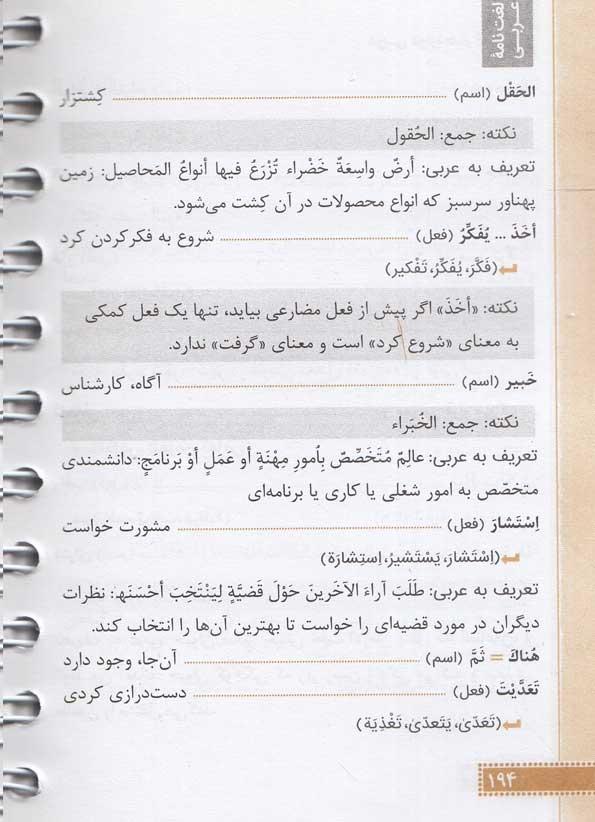 لغت‌نامهٔ
عربی
الحَقْل (اسم) کِشتزار
نکته: جمع: الحُقول
تعریف به عربی: أرضٌ واسِعَةٌ خَضْراء تُزْرَعُ فیها أنواعُ المَحاصیل: زمین
پهناور سرسبز که انواع محصولات در آن کِشت می‌شود.
أخَذَ ... یُفَکِّرُ (فعل) شروع به فکر کردن کرد
(فَکَّرَ، یُفَکِّرُ، تَفْکیر)
نکته: «أخَذَ» اگر پیش از فعل مضارعی بیاید، تنها یک فعل کمکی
به معنای «شروع کرد» است و معنای «گرفت» ندارد.
خَبیر (اسم) آگاه، کارشناس
نکته: جمع: الخُبَراء
تعریف به عربی: عالِمٌ مُتَخَصِّصٌ بِاُمورِ مِهْنَةٍ أو عَمَلٍ أوْ بَرنامَجٍ: دانشمندی
متخصّص به امور شغلی یا کاری یا برنامه‌ای
اِسْتَشارَ (فعل) مشورت خواست
(اِسْتَشارَ، یَسْتَشیرُ، اِستِشارَة)
تعریف به عربی: طَلَبَ آراءَ الآخَرینَ حَوْلَ قَضیَّةٍ لِیَنْتَخِبَ أحْسَنَها: نظرات
دیگران در مورد قضیه‌ای را خواست تا بهترین آن‌ها را انتخاب کند.
هُناكَ = ثَمَّ (اسم) آن‌جا، وجود دارد
تَعَدَّیْتَ (فعل) دست‌درازی کردی
(تَعَدّیٰ، یَتَعدّیٰ، تَغْذِیَة)
۱۹۴